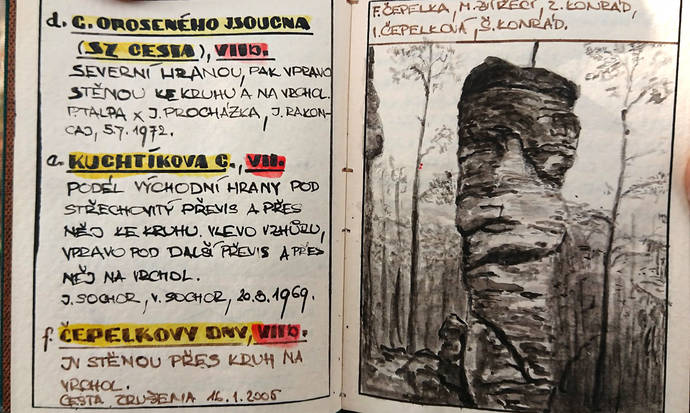 d. C. OROSENÉHO JSOUCNA
(SZ CESTA), VIIb.
SEVERNÍ HRANOU, PAK VPRAVO
STĚNOU KE KRUHU A NA VRCHOL.
P. TALPA x J. PROCHÁZKA, J. RAKON-
CAJ, 5.7. 1972.
a. KUCHTÍKOVA C., VII.
PODÉL VÝCHODNÍ HRANY POD
STŘECHOVITÝ PŘEVIS A PŘES
NĚJ KE KRUHU. VLEVO VZHŮRU,
VPRAVO POD DALŠÍ PŘEVIS A PŘES
NĚJ NA VRCHOL.
J. SOCHOR, V. SOCHOR, 20.9.1969.
f. ČEPELKOVY DNY, VIIb.
JV STĚNOU PŘES KRUH NA
VRCHOL.
CESTA ZRUŠENA 16.1.2005
F. ČEPELKA, M. Z. KONRÁD,
I. ČEPELKOVÁ, Š. KONRÁD.